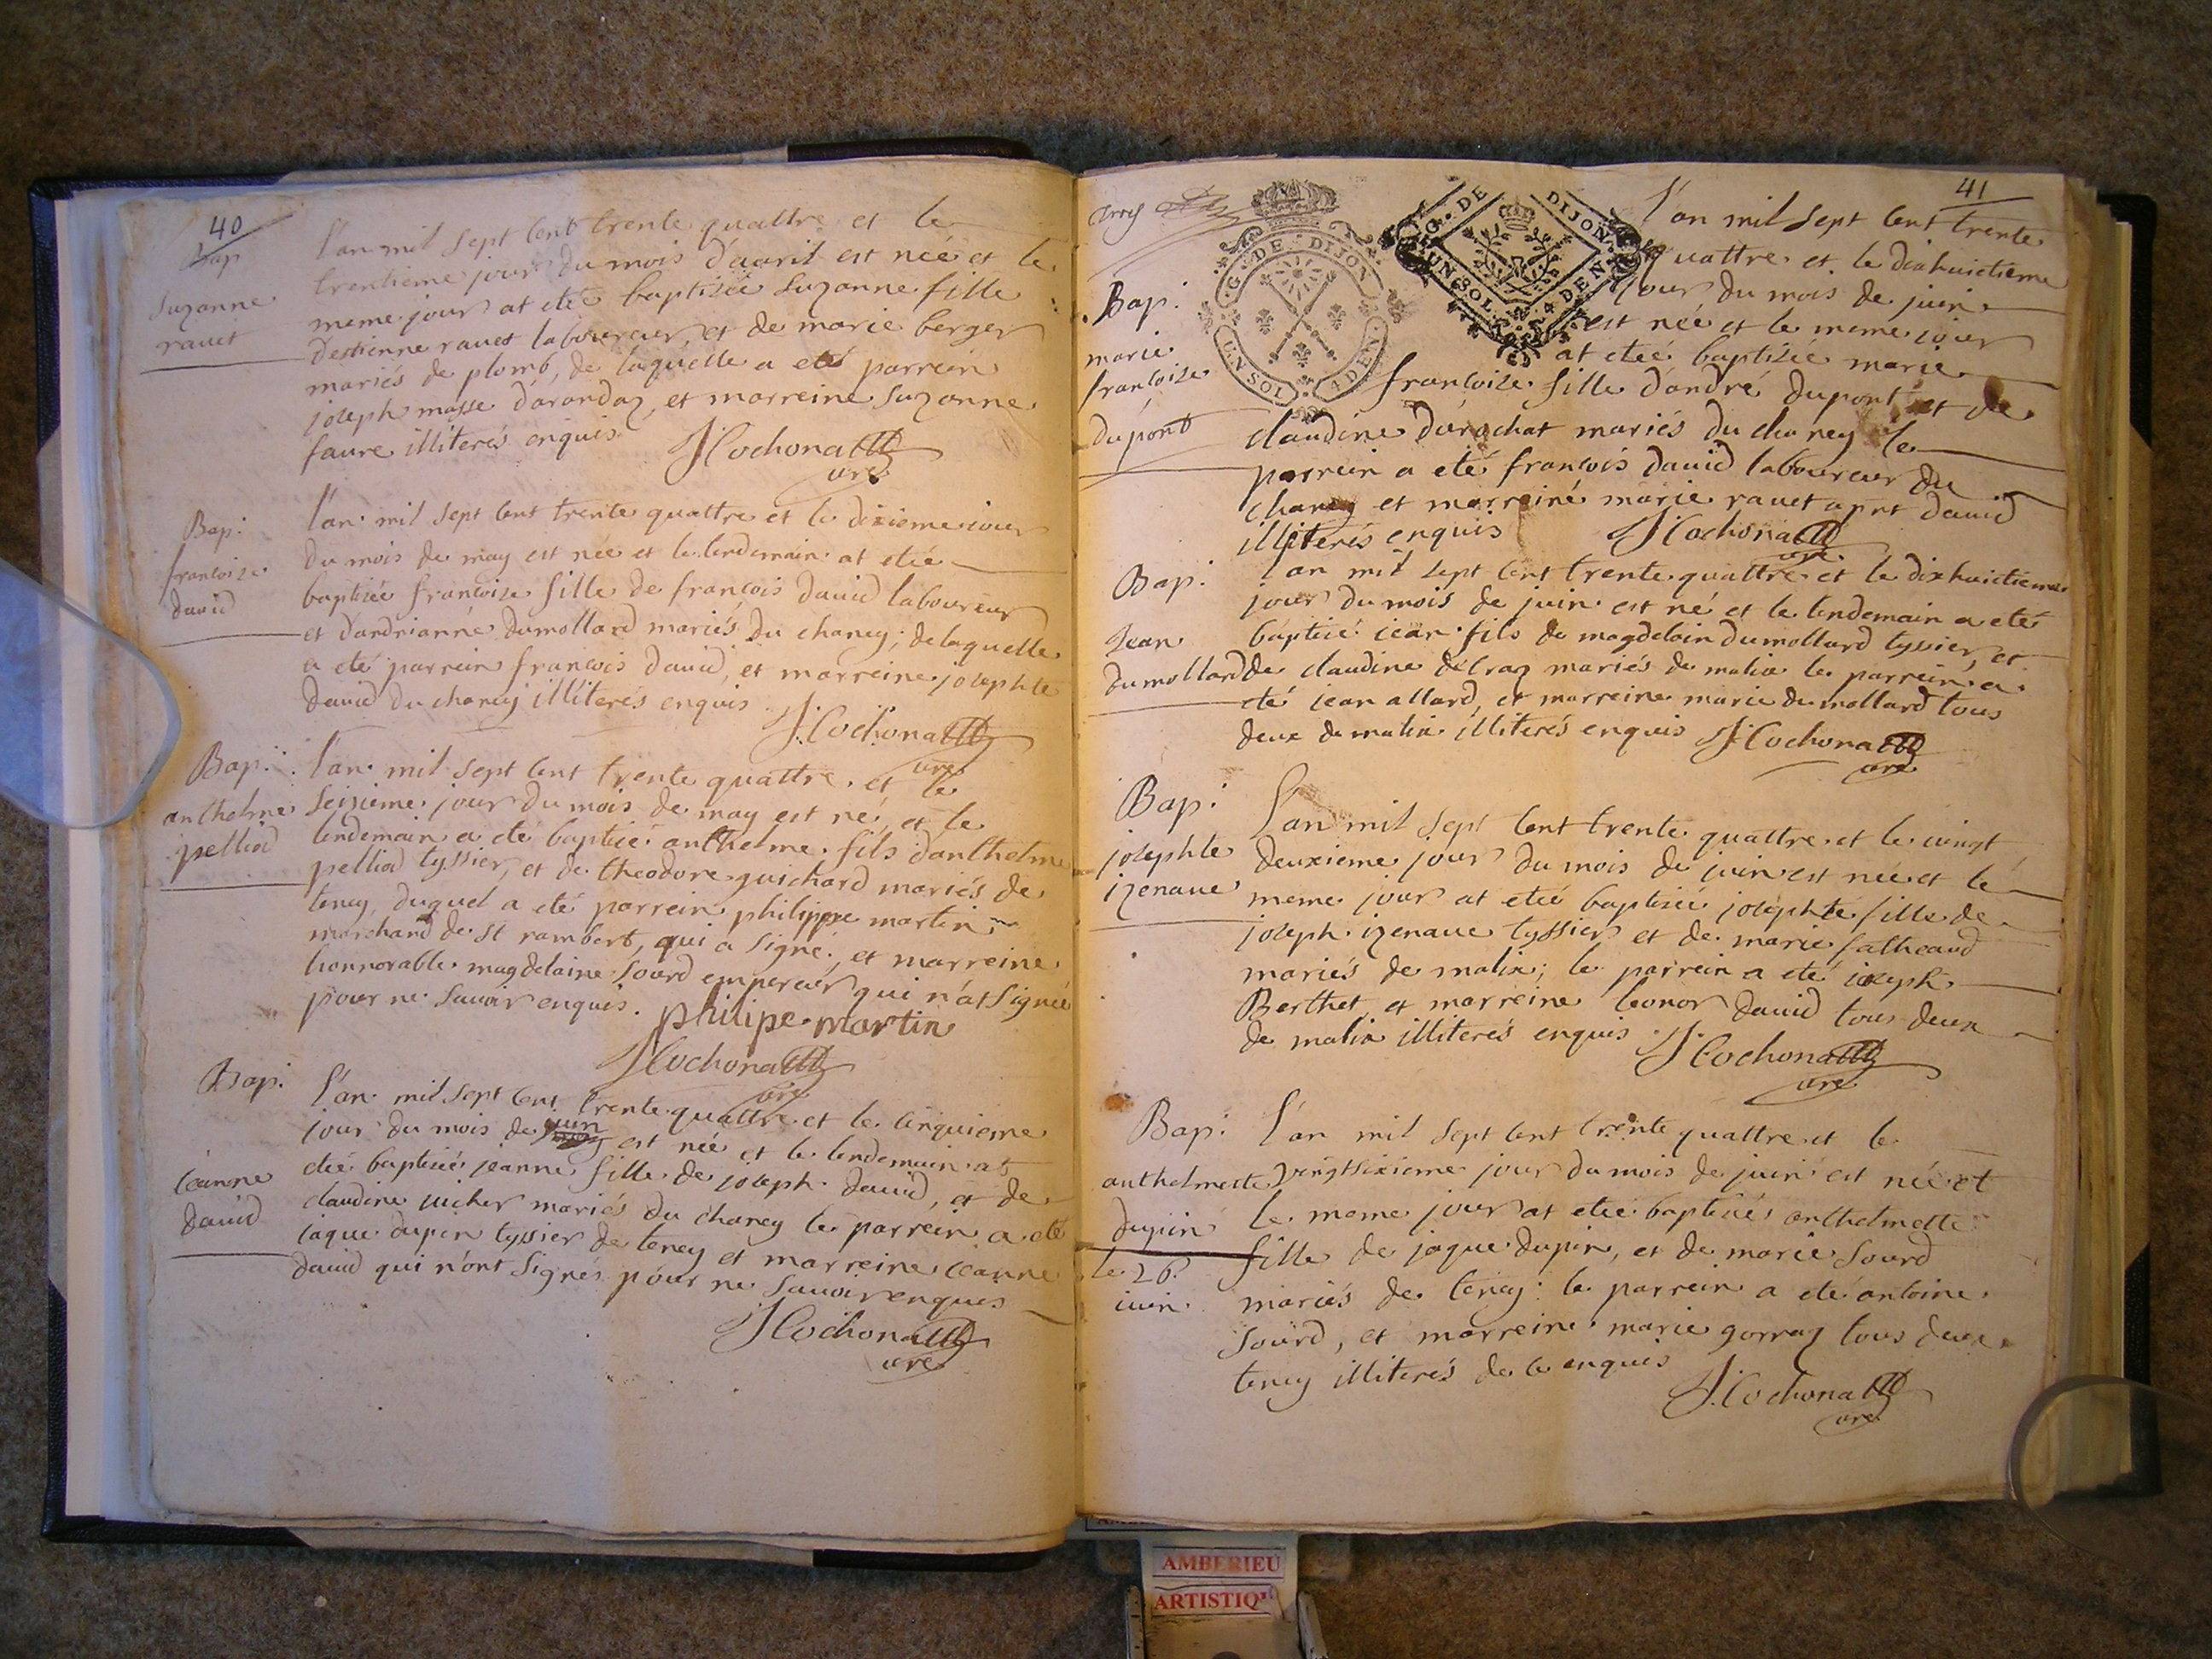 40
Bap
Suzanne
ravet
l'an mil sept cent trente quattre et le
trentieme jour du mois d'avril est née et le
meme jour at eteé baptisée Suzanne fille
destienne ravet laboureur, et de marie berger
mariés de plomb, de laquelle a eté parrein
joseph masse d'arandaz, et marreine Suzanne
faure illiterés enquis
J Cochonatt
cure
Bap:
francoise
david
l'an mil sept cent trente quattre et le dixieme iour
du mois de may est née et le lendemain at eteé
baptisée francoise fille de francois david laboureur
et dandrianne dumollard mariés du chaney; de laquelle
a eté parrein francois david, et marreine josephte
david du chaney illiterés enquis
J. Cochonatt
cure
Bap:
anthelme
pelliod
l'an mil sept cent trente quattre et le
seizieme jour du mois de may est né, et le
lendemain a eté baptisé anthelme fils d'anthelme
pelliod tyssier, et de theodore guichard mariés de
teney, duquel a eté parrein philippe martin
marchand de st rambert, qui a signé, et marreine
honnorable magdelaine sourd empereur qui n'at signée
pour ne savoir enquis.
philipe martin
J Cochonatt
cure
Bap:
jeanne
david
l'an mil sept cent trente quattre et le cinquieme
jour du mois de juin est née et le lendemain at
eteé baptisée jeanne fille de joseph david, et de
claudine juicher mariés du chaney le parrein a eté
jaque dupin tyssier de teney et marreine jeanne
david qui n'ont signés pour ne savoir enquis
J Cochonatt
cure
41
G. DE DIJON
UN SOL 4 DEN.
G. DE DIJON
UN SOL 4 DEN.
Bap:
marie
francoise
dupont
l'an mil sept cent trente
quattre et le dixhuictieme
jour du mois de juin
est née et le meme jour
at eteé baptisée marie
francoise fille d'andré dupont et de
claudine durochat mariés du chaney le
parrein a eté francois david laboureur du
chaney et marreine marie ravet david
illiterés enquis
J Cochonatt
cure
Bap:
Jean
dumollard
l'an mil sept cent trente quattre et le dixhuictieme
jour du mois de juin est né et le lendemain a eté
baptisé jean fils de magdelain dumollard tyssier, et
de claudine delraz mariés de malix le parrein a
eté jean allard, et marreine marie dumollard tous
deux de malix illiterés enquis
J Cochonatt
cure
Bap:
josephte
izenave
l'an mil sept cent trente quattre et le vingt
deuxieme jour du mois de juin est née et le
meme jour at eteé baptisée josephte fille de
joseph izenave tyssier et de marie falheaud
mariés de malix; le parrein a eté joseph
Berthet, et marreine leonor david tous deux
de malix illiterés enquis
J Cochonatt
cure
Bap:
anthelmette
dupin
le 26
iuin
l'an mil sept cent trente quattre et le
vingtsixieme jour du mois de juin est née et
le meme jour at eteé baptisée anthelmette
fille de jaque dupin, et de marie sourd
mariés de teney: le parrein a eté antoine
sourd, et marreine marie gorraz tous deux
teney illiterés de ce enquis
J. Cochonatt
cure
AMBERIEU
ARTISTIQ